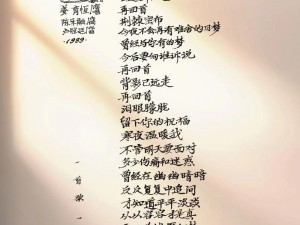 姜育恒
陈乐融
卢冠廷
1989
再回首
荆棘密布
今夜不会再有难舍的旧梦
曾经与你有的梦
今后要向谁诉说
再回首
背影已远走
再回首
泪眼朦胧
留下你的祝福
寒夜温暖我
不管明天要面对
多少伤痛和迷惑
曾经在幽幽暗暗
反反复复中追问
才知道平平淡淡
从从容容才是真
一首